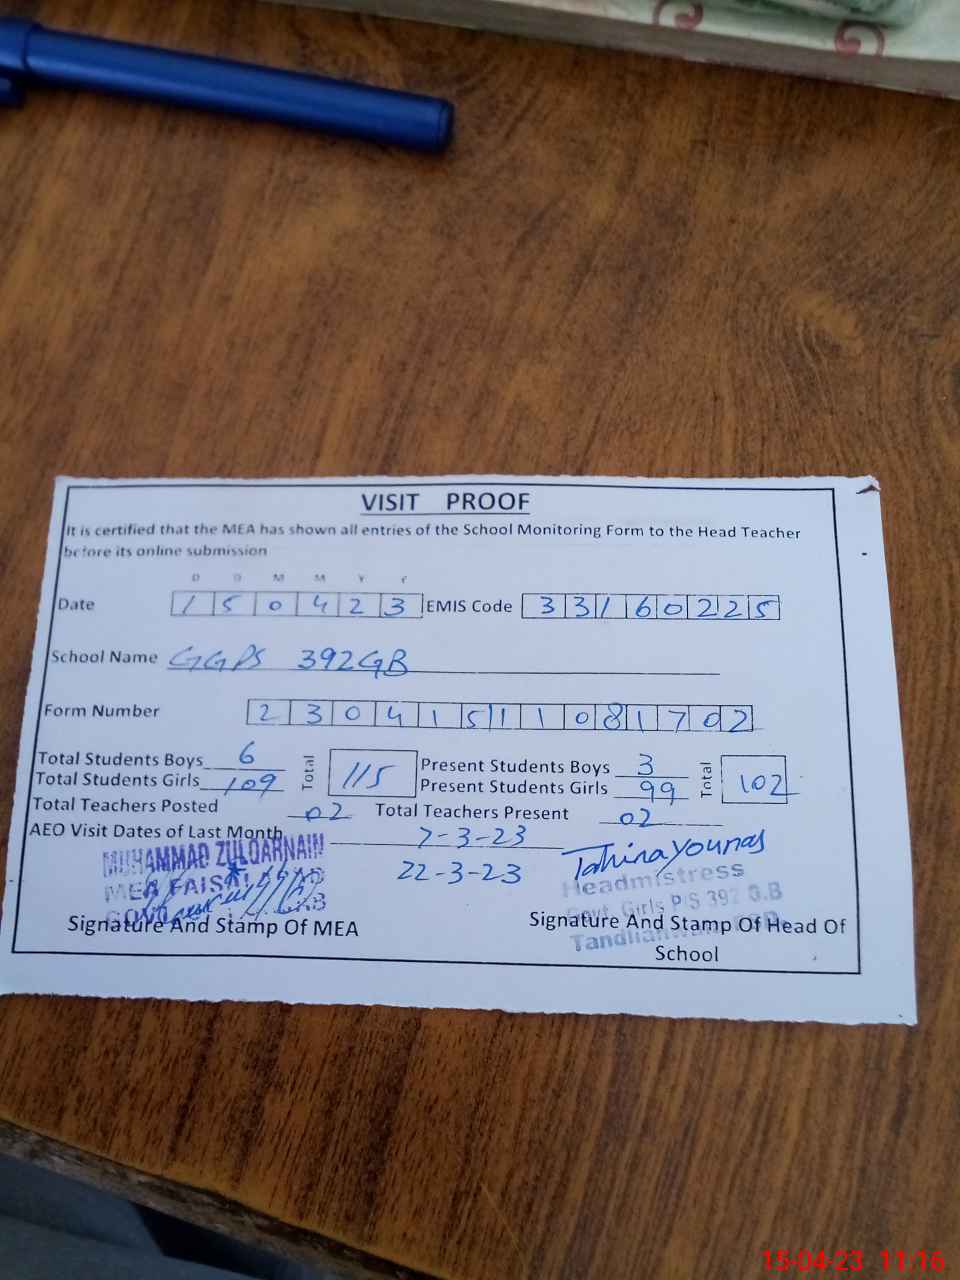 VISIT PROOF
It is certified that the MEA has shown all entries of the School Monitoring Form to the Head Teacher
before its online submission
D D M M Y Y
Date 150423 EMIS Code 33160225
School Name GGPS 392GB
Form Number 23041511081702
Total Students Boys 6 Total 115 Present Students Boys 3 Total 102
Total Students Girls 109 Present Students Girls 99
Total Teachers Posted 02 Total Teachers Present 02
AEO Visit Dates of Last Month 7-3-23
22-3-23
MUHAMMAD ZULQARNAIN
MEA FAISALABAD
Tahira Younas
Headmistress
Govt. Girls P/S 392 G.B
Signature And Stamp Of MEA
Signature And Stamp Of Head Of
School
15-04-23 11:16